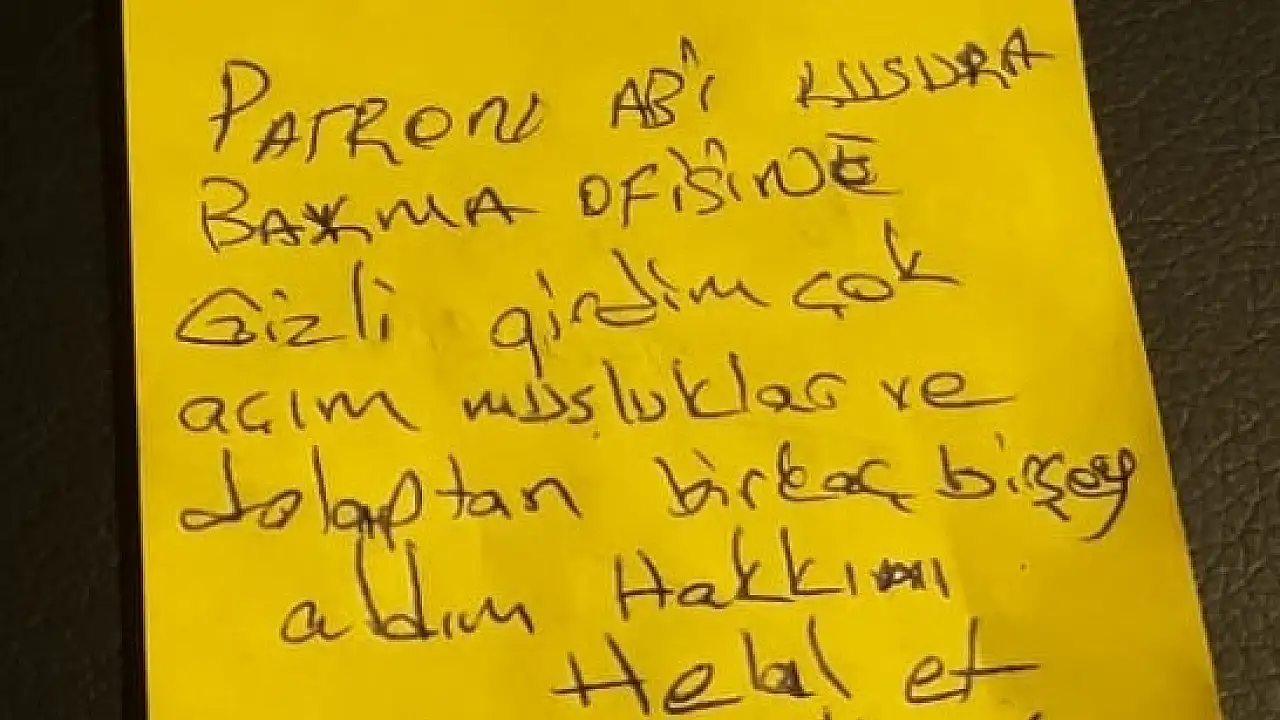 PATRON ABİ KUSURA
BAKMA OFİSİNE
Gizli girdim çok
açım musluklar ve
dolaptan birkaç birşey
aldım Hakkını
Helal et